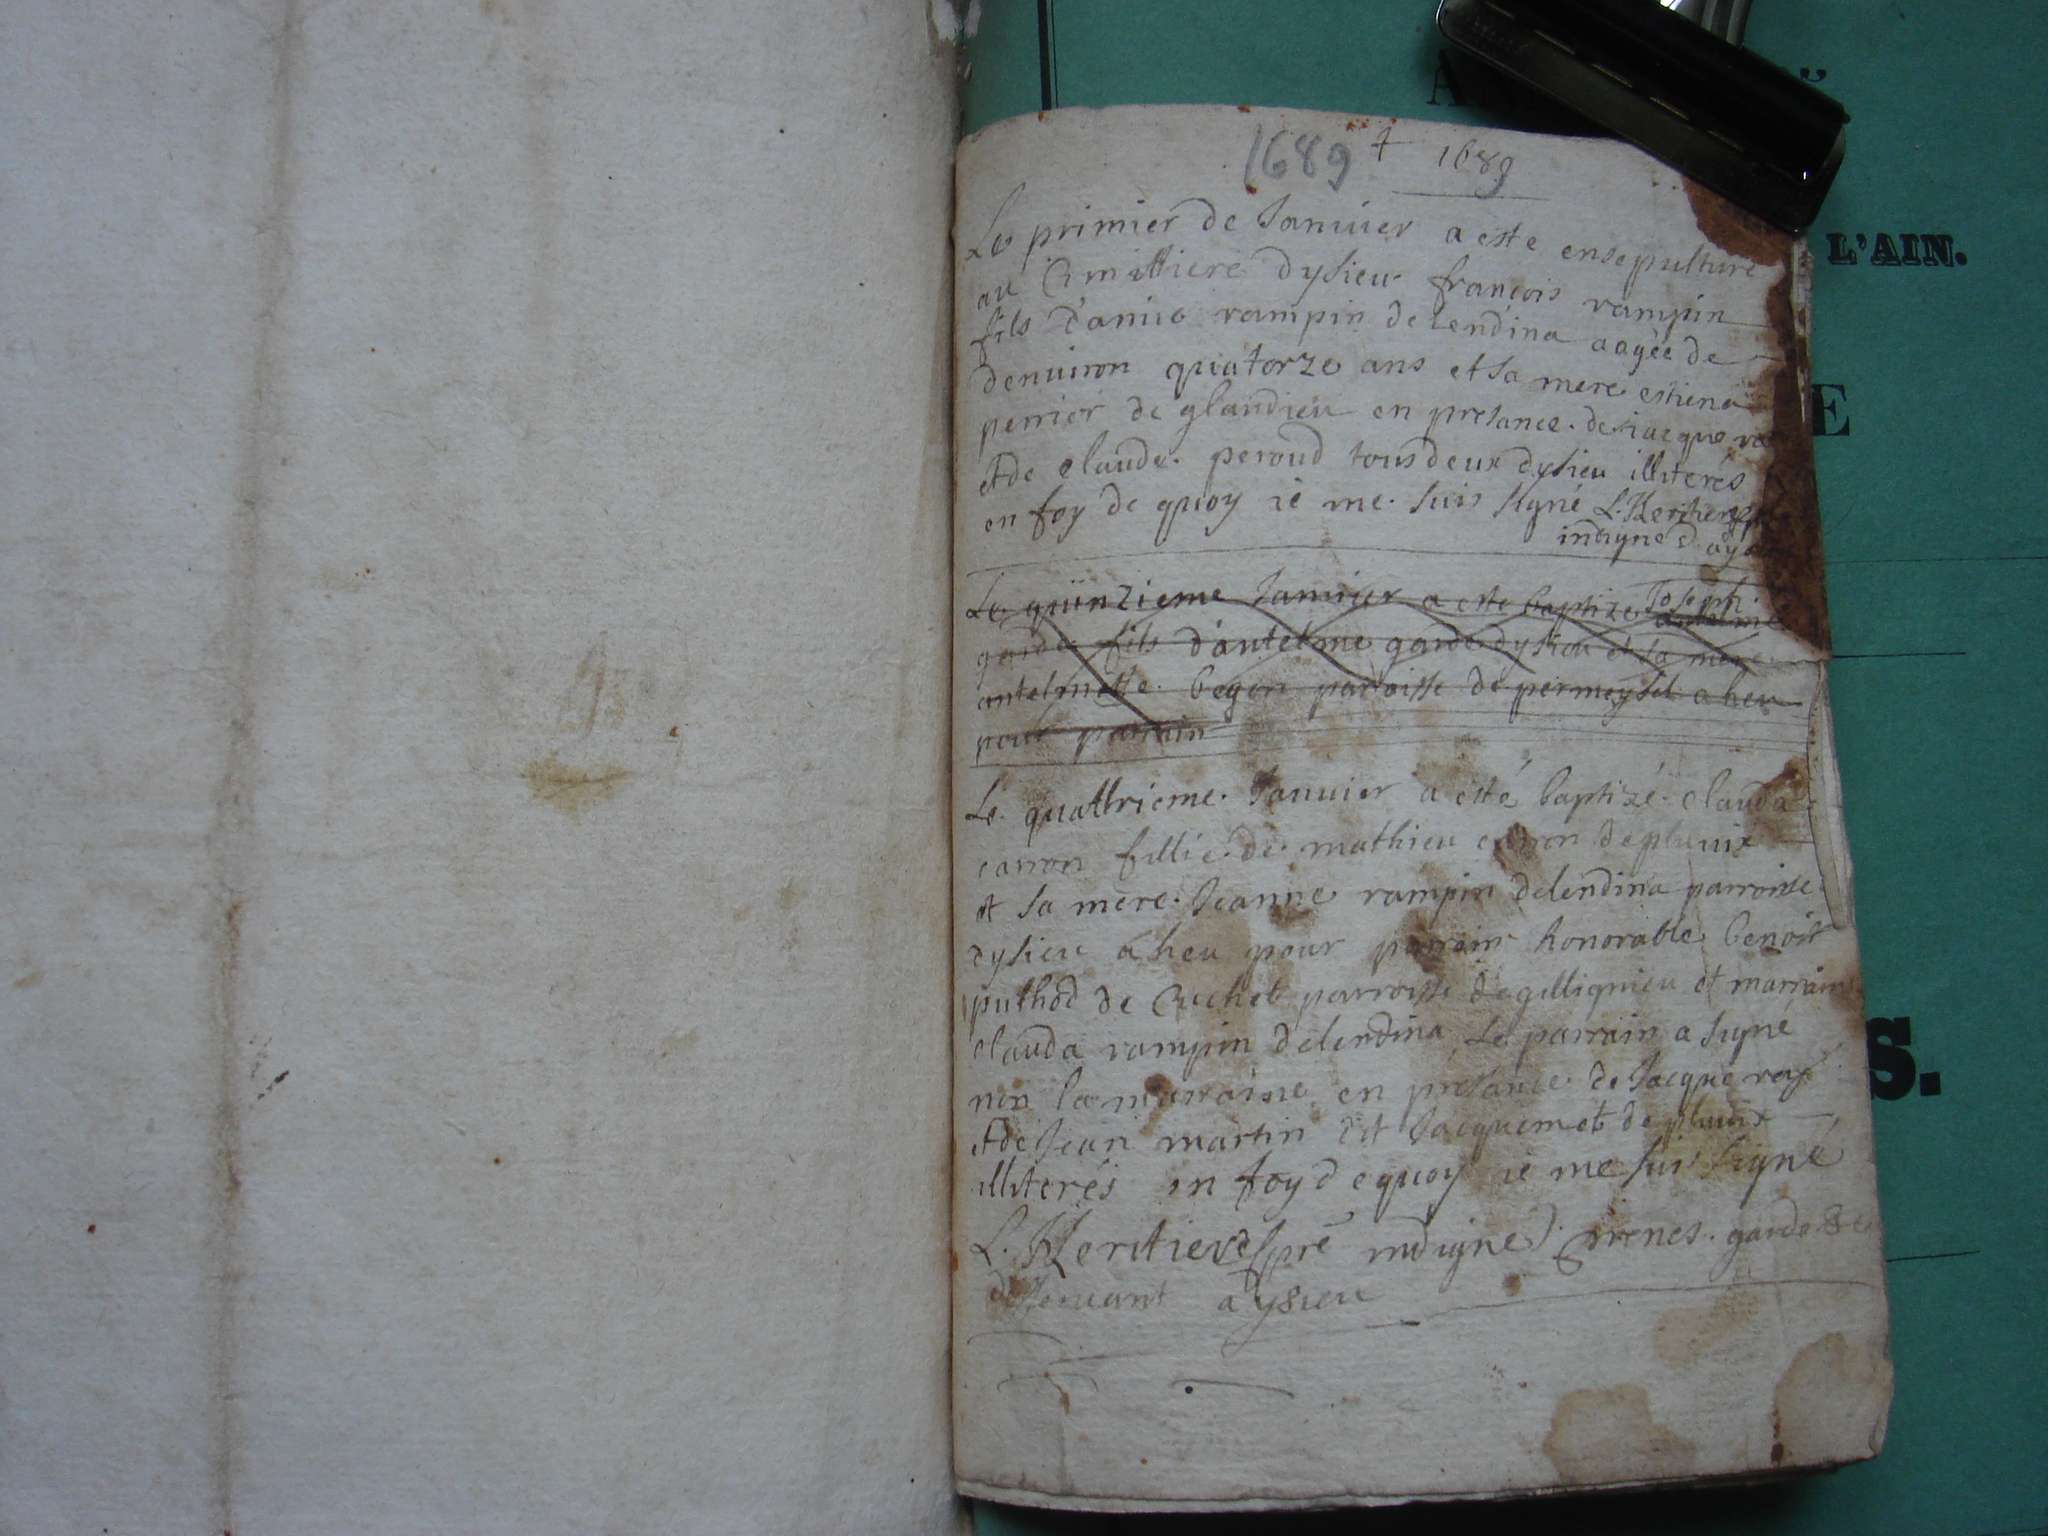 1689 + 1689
Le primier de Januier a este ensepulture
au Cimittiere dysieu françois rampin
fils d'amie rampin delendina aagée de
denuiron quatorze ans et sa mere estiena
perrier de glandieu en presance de iacque
et de claude peroud tous deux dysieu illiterés
en foy de quoy ie me suis signé L. Heritier
indigne
Le quinzieme Januier a este baptize Joseph
garde fils d'antelme garde dysieu et sa mere
antelmette begon parroisse de permeysel a heu
pour parrain
Le quattrieme Januier a esté baptizé clauda
carron fillie de mathieu carron depluuix
et sa mere Jeanne rampin delendina parroisse
dysieu a heu pour parrain honorable benoit
puthod de Cuchet parroisse degillignieu et marraine
clauda rampin delendina Le parrain a signé
non la marraine en presance de Jacque rey
et de Jean martin dit Jacquemet de pluuix
illiterés en foy de quoy ie me suis signé
L. Heritier pre indigne garde
desseruant a ysieu
L'AIN.
E
S.